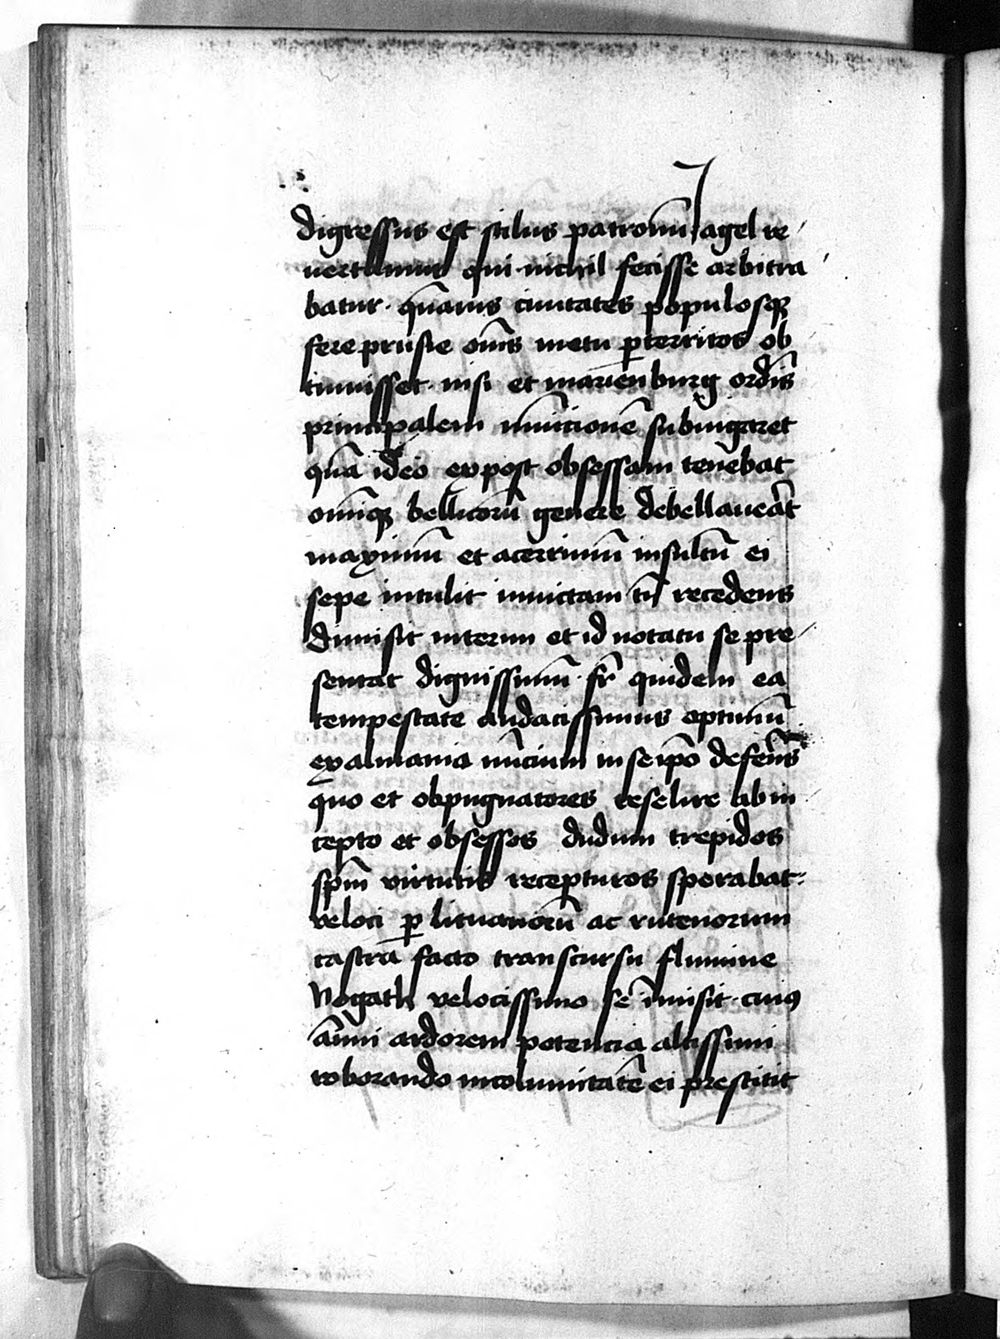 digressus est stilus patronū Jagel re
vertamur qui nichil fecisse arbitra
batur. q̄mvis civitates populosq̨
fere prusie om̄s metu ꝑterritos ob
tinuisset. nisi et marienburg ordīs
principalem mūicionē subiugaret
quā ideo expost obsessam tenebat
omīq̨ bellicorū genere debellaveāt
maximū et acerrimū insultū ei
sepe intulit invictam tn̄ recedens
dimisit interim et id notatu se pre
sentat dignissimū. fr̄ quidem ea
tempestate audacissimus optimū
ex almania nūcium in seipō deferēs
quo et obpugnatores reselire ab in
cepto et obsessos dudum trepidos
sp̄m virtutis recepturos sperabat.
veloci ꝑ lituanorū ac rutenorum
castra facto transcursu flumine
Nogath velocissimo se īmisit. cuiꝰ
aīmi ardorem potencia altissimi
roborando incolumitatē ei prestitit